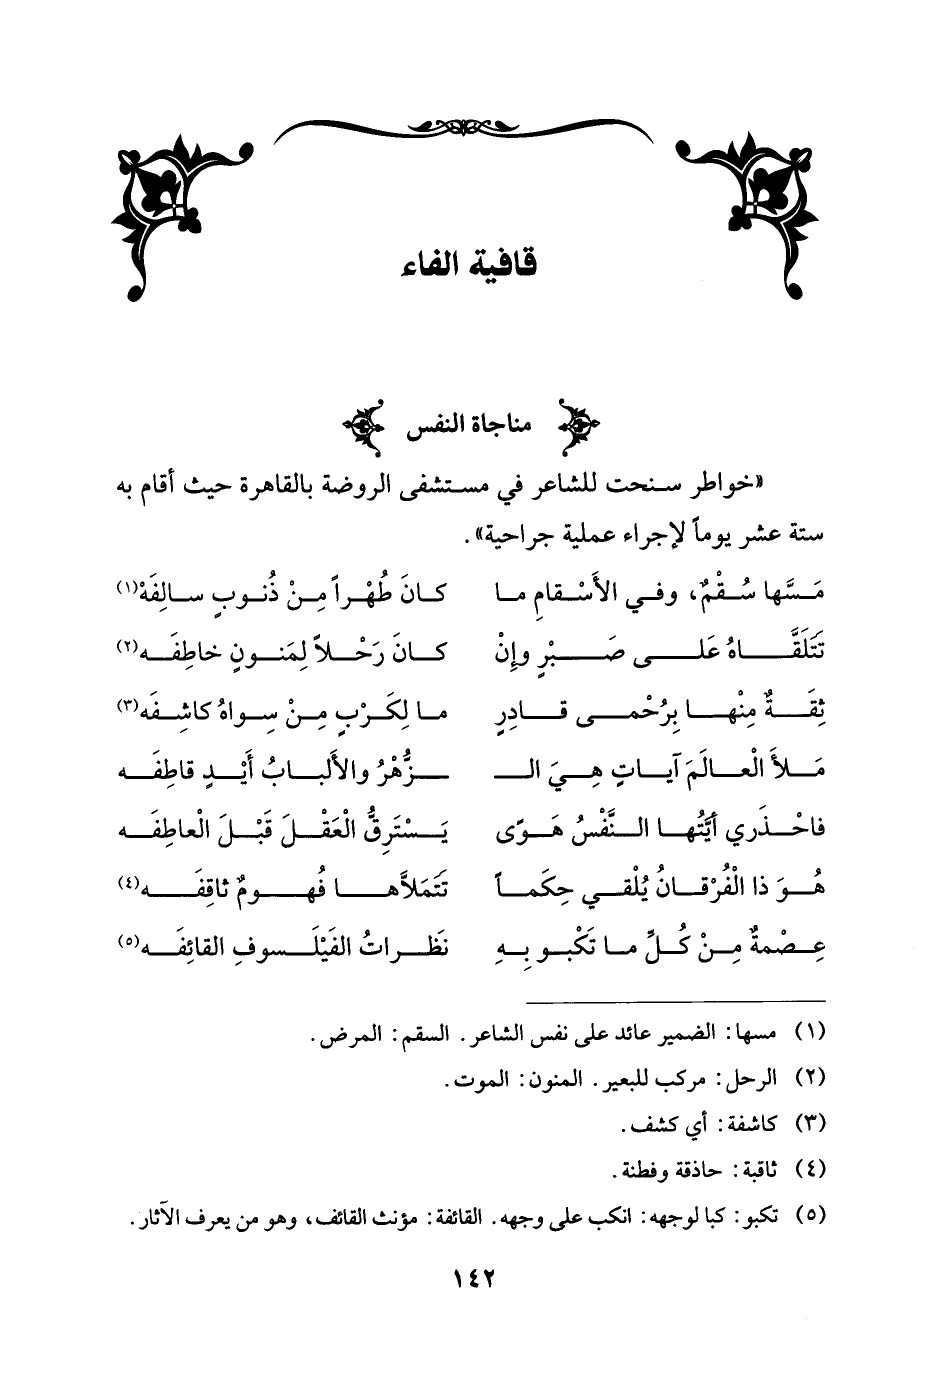 قافية الفاء
مناجاة النفس
«خواطر سنحت للشاعر في مستشفى الروضة بالقاهرة حيث أقام به
ستة عشر يوماً لإجراء عملية جراحية».
مَسَّها سُقْمٌ، وفي الأَسْقامِ ما كانَ طُهْراً مِنْ ذُنوبٍ سالِفَهْ(١)
تَتَلَقَّاهُ عَلى صَبْرٍ وإِنْ كانَ رَحْلاً لِمَنونٍ خاطِفَه(٢)
ثِقَةٌ مِنْها بِرُحْمى قادِرٍ ما لِكَرْبٍ مِنْ سِواهُ كاشِفَه(٣)
مَلأَ الْعالَمَ آياتٍ هِيَ الـ ـزُّهْرُ والأَلبابُ أَيْدٍ قاطِفَه
فاحْذَري أيَّتُها النَّفْسُ هَوًى يَسْتَرِقُّ الْعَقْلَ قَبْلَ الْعاطِفَه
هُوَ ذا الْفُرْقانُ يُلْقي حِكَماً تَتَمَلاَّها فُهومٌ ثاقِفَه(٤)
عِصْمةٌ مِنْ كُلِّ ما تَكْبو بِهِ نَظَراتُ الفَيْلَسوفِ القائِفَه(٥)
(١) مسها: الضمير عائد على نفس الشاعر. السقم: المرض.
(٢) الرحل: مركب للبعير. المنون: الموت.
(٣) كاشفة: أي كشف.
(٤) ثاقبة: حاذقة وفطنة.
(٥) تكبو: كبا لوجهه: انكب على وجهه. القائفة: مؤنث القائف، وهو من يعرف الآثار.
١٤٢